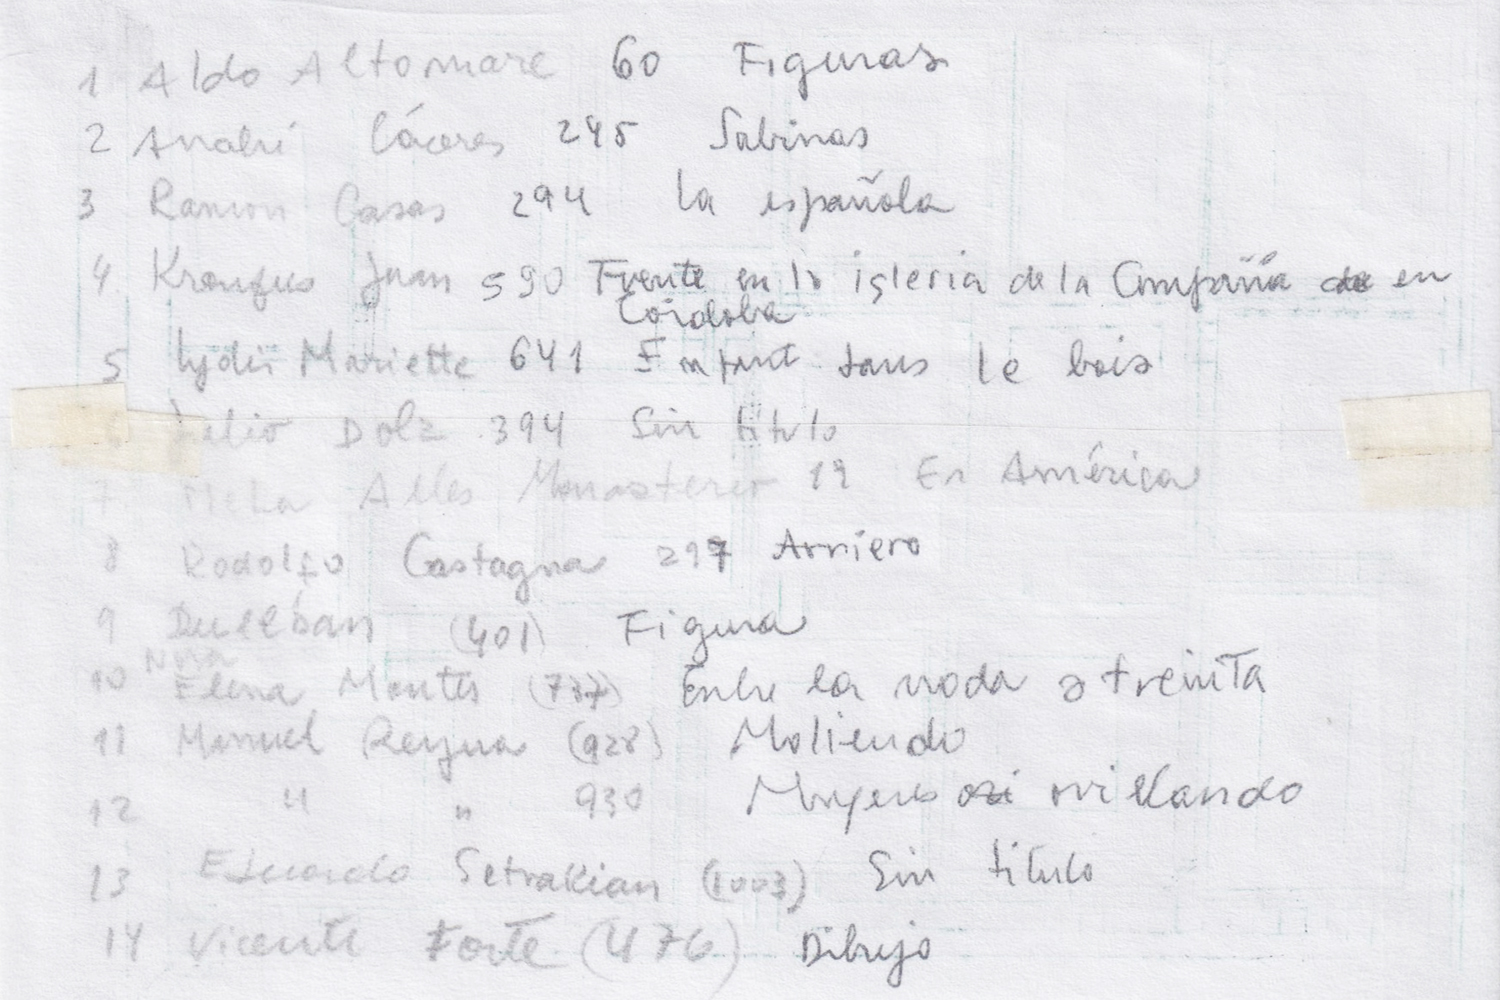 1 Aldo Altomare 60 Figuras
2 André Cáceres 245 Sabinas
3 Ramon Casas 294 la española
4 Kronfus Juan 590 Frente en la iglesia de la Compañía en
Córdoba
5 Lydis Mariette 641 Enfant dans le bois
6 Julio Dolz 394 Sin titulo
7 Alles Monasterio 19 En América
8 Rodolfo Castagna 297 Arriero
9 (401) Figura
Nina
10 Elena Montes (737) Entre la rioda a treinta
11 Manuel Reyna (928) Moliendo
12 " " 930 Mujeres ovillando
13 Eduardo Setrakian (1003) Sin titulo
14 Vicente Forte (476) Dibujo